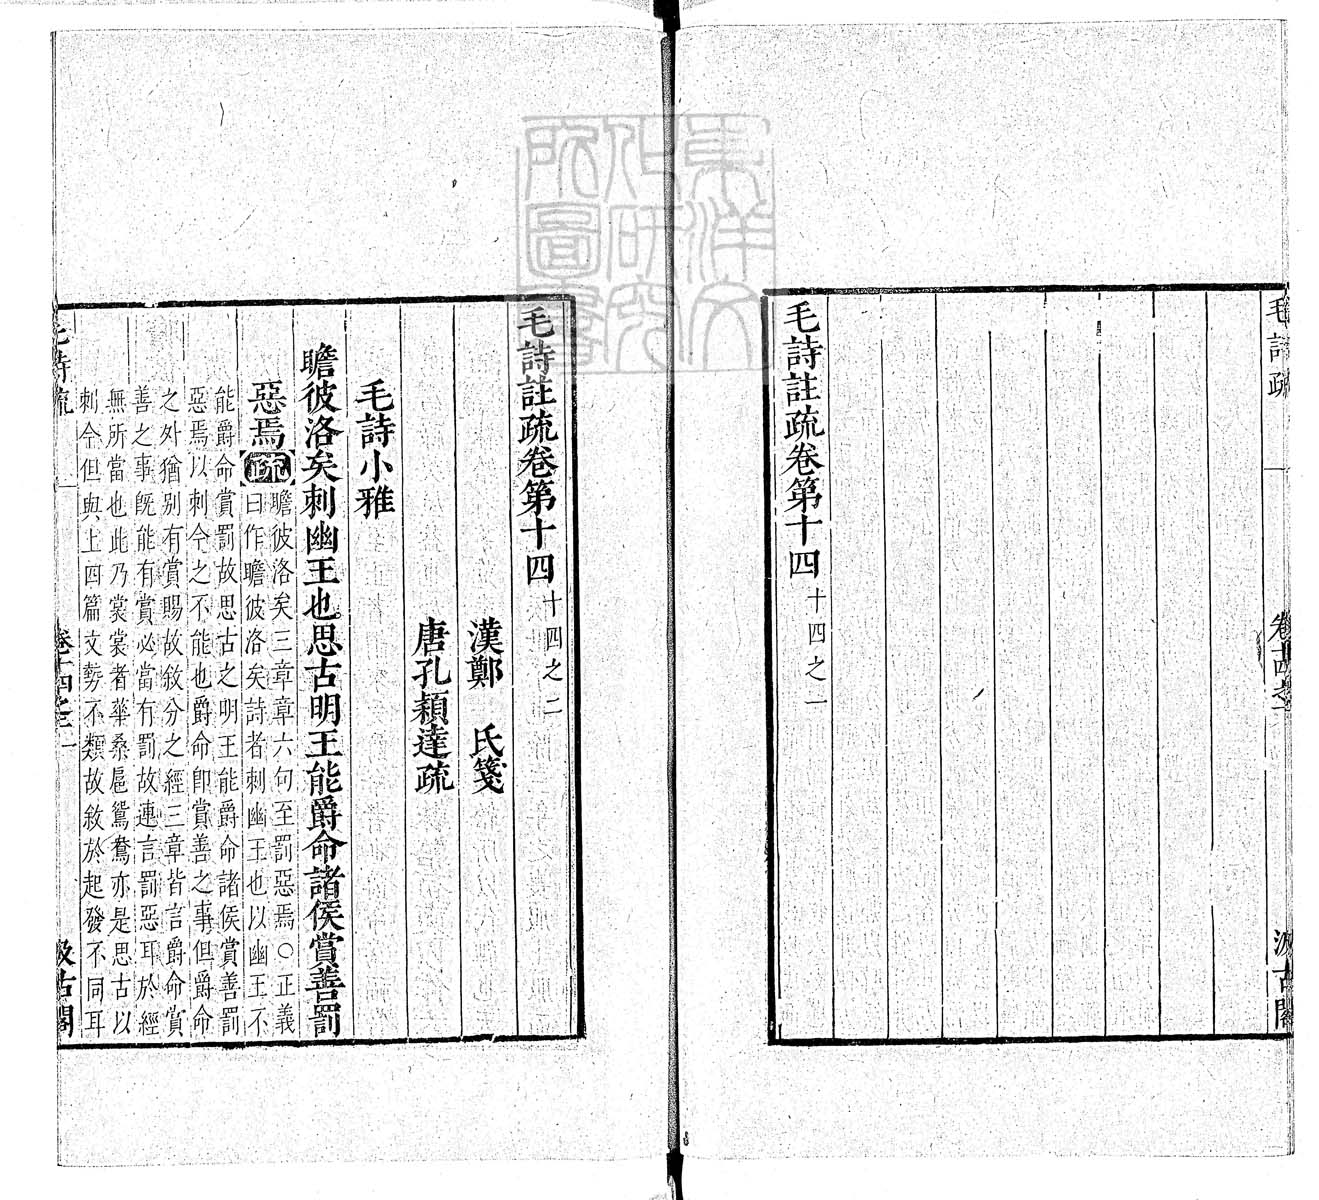 毛詩疏
卷十四之一
汲古閣
毛詩註疏卷第十四十四之一
毛詩註疏卷第十四十四之二
漢鄭 氏箋
唐孔穎達疏
毛詩小雅
瞻彼洛矣刺幽王也思古明王能爵命諸侯賞善罰
惡焉疏瞻彼洛矣三章章六句至罰惡焉○正義
曰作瞻彼洛矣詩者刺幽王也以幽王不
能爵命賞罰故思古之明王能爵命諸侯賞善罰
惡焉以刺今之不能也爵命卽賞善之事但爵命
之外猶別有賞賜故敘分之經三章皆言爵命賞
善之事旣能有賞必當有罰故連言罰惡耳於經
無所當也此乃裳裳者華桑扈鴛鴦亦是思古以
刺今但與上四篇文勢不類故敘於起發不同耳
毛詩疏
卷十四之二
一
汲古閣
東洋文
化研究
所圖書